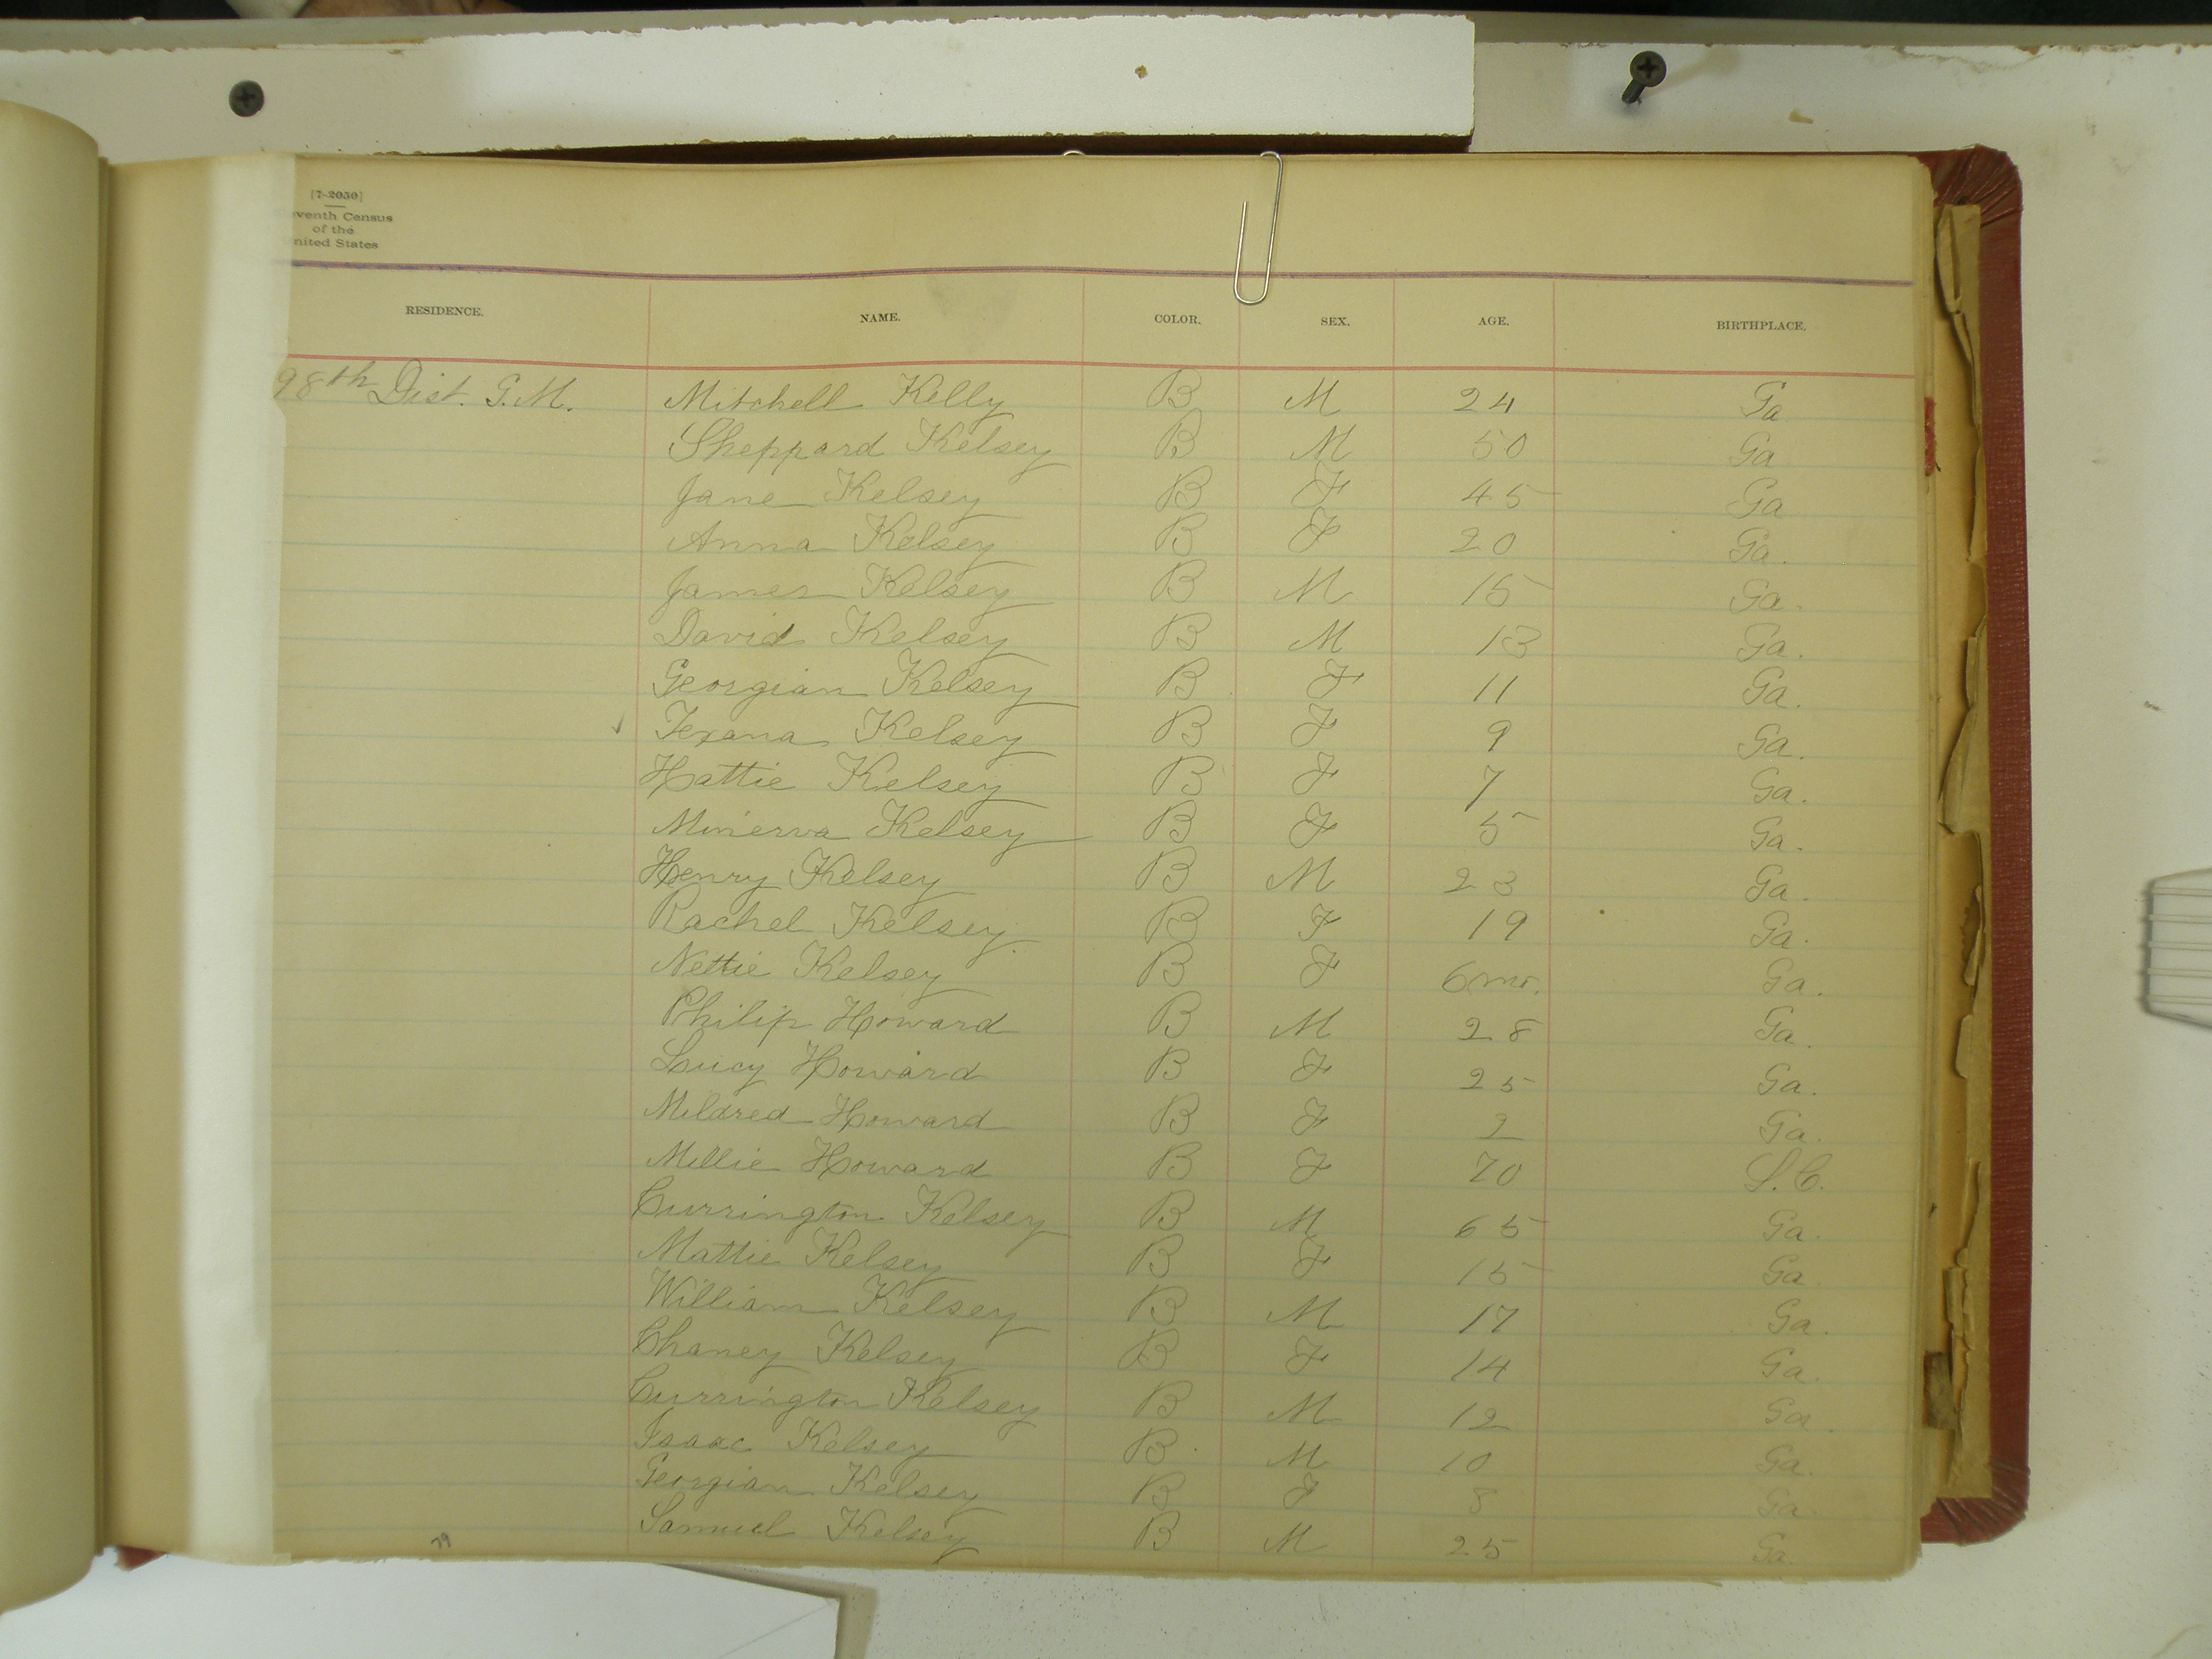 [7-2050]
eventh Census
of the
nited States
RESIDENCE. NAME. COLOR. SEX. AGE. BIRTHPLACE.
98th Dist. G.M. Mitchell Kelly B M 24 Ga
Sheppard Kelsey B M 50 Ga
Jane Kelsey B F 45 Ga
Anna Kelsey B F 20 Ga.
James Kelsey B M 15 Ga.
David Kelsey B M 13 Ga.
Georgian Kelsey B F 11 Ga.
✓ Texana Kelsey B F 9 Ga.
Hattie Kelsey B F 7 Ga.
Minerva Kelsey B F 5 Ga.
Henry Kelsey B M 23 Ga.
Rachel Kelsey B F 19 Ga.
Nettie Kelsey B F 6 mo. Ga.
Philip Howard B M 28 Ga.
Lucy Howard B F 25 Ga.
Mildred Howard B F 2 Ga.
Millie Howard B F 70 S.C.
Currington Kelsey B M 65 Ga.
Mattie Kelsey B F 15 Ga.
William Kelsey B M 17 Ga.
Chaney Kelsey B F 14 Ga.
Currington Kelsey B M 12 Ga.
Isaac Kelsey B M 10 Ga.
Georgian Kelsey B F 8 Ga.
Samuel Kelsey B M 25 Ga.